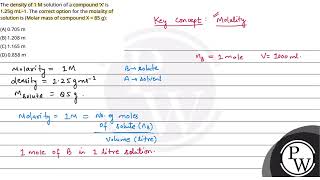 The density of 1 M solution of a compound 'X' is
1.25g mL−1. The correct option for the molality of
solution is (Molar mass of compound X = 85 g):
(A) 0.705 m
(B) 1.208 m
(C) 1.165 m
(D) 0.858 m
Key concept : Molality
nB = 1 mole V = 1000 ml
Molarity = 1M B → solute
density = 1.25 gml⁻¹ A → solvent
Msolute = 85 g
Molarity = 1M = No. of moles of solute (nB) / Volume (litre)
1 mole of B in 1 litre solution.
PW